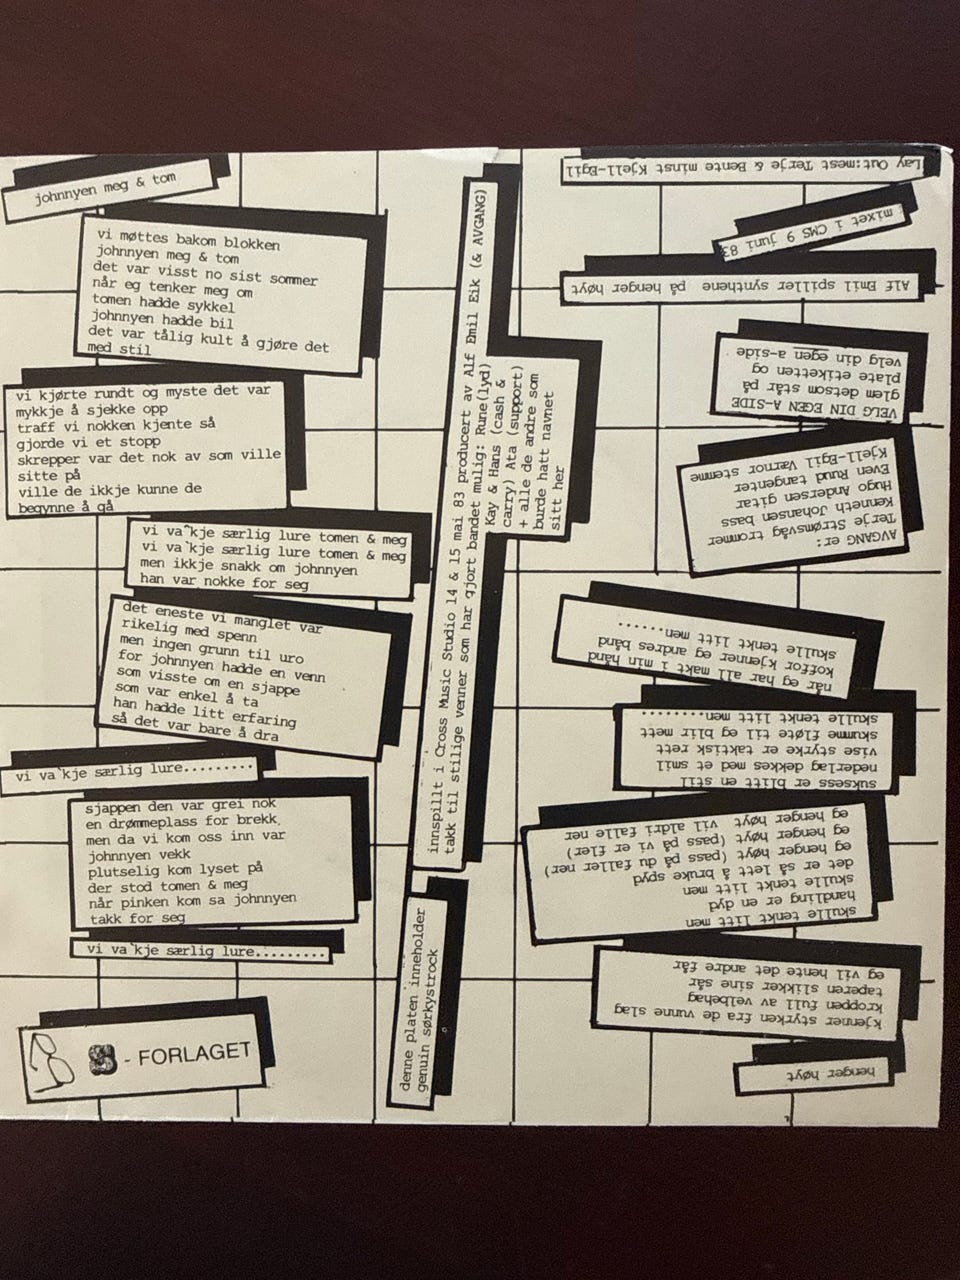 johnnyen meg & tom
vi møttes bakom blokken
johnnyen meg & tom
det var visst no sist sommer
når eg tenker meg om
tomen hadde sykkel
johnnyen hadde bil
det var tålig kult å gjøre det
med stil
vi kjørte rundt og myste det var
mykkje å sjekke opp
traff vi nokken kjente så
gjorde vi et stopp
skrepper var det nok av som ville
sitte på
ville de ikkje kunne de
begynne å gå
vi va`kje særlig lure tomen & meg
vi va`kje særlig lure tomen & meg
men ikkje snakk om johnnyen
han var nokke for seg
det eneste vi manglet var
rikelig med spenn
men ingen grunn til uro
for johnnyen hadde en venn
som visste om en sjappe
som var enkel å ta
han hadde litt erfaring
så det var bare å dra
vi va`kje særlig lure.........
sjappen den var grei nok
en drømmeplass for brekk.
men da vi kom oss inn var
johnnyen vekk
plutselig kom lyset på
der stod tomen & meg
når pinken kom sa johnnyen
takk for seg
vi va`kje særlig lure.........
B - FORLAGET
innspillt i Cross Music Studio 14 & 15 mai 83 producert av Alf Emil Eik (& AVGANG)
takk til stilige venner som har gjort bandet mulig: Rune(lyd)
Kay & Hans (cash &
carry) Ata (support)
+ alle de andre som
burde hatt navnet
sitt her
denne platen inneholder
genuin sørkystrock
henger høyt
kjenner styrken fra de vunne slag
kroppen full av velbehag
taperen slikker sine sår
eg vil hente det andre får
skulle tenkt litt men
handling er en dyd
skulle tenkt litt men
det er så lett å bruke spyd
eg henger høyt (pass på du faller ner)
eg henger høyt (pass på vi er fler)
eg henger høyt vil aldri falle ner
suksess er blitt en stil
nederlag dekkes med et smil
vise styrke er taktisk rett
skumme fløte til eg blir mett
skulle tenkt litt men........
når eg har all makt i min hånd
koffor kjenner eg andres bånd
skulle tenkt litt men......
AVGANG er:
Terje Strømsvåg trommer
Kenneth Johansen bass
Hugo Andersen gitar
Even Ruud tangenter
Kjell-Egil Værnor stemme
VELG DIN EGEN A-SIDE
glem detsom står på
plate etiketten og
velg din egen a-side
Alf Emil spiller synthene på henger høyt
mixet i CMS 9 juni 83
Lay Out:mest Terje & Bente minst Kjell-Egil